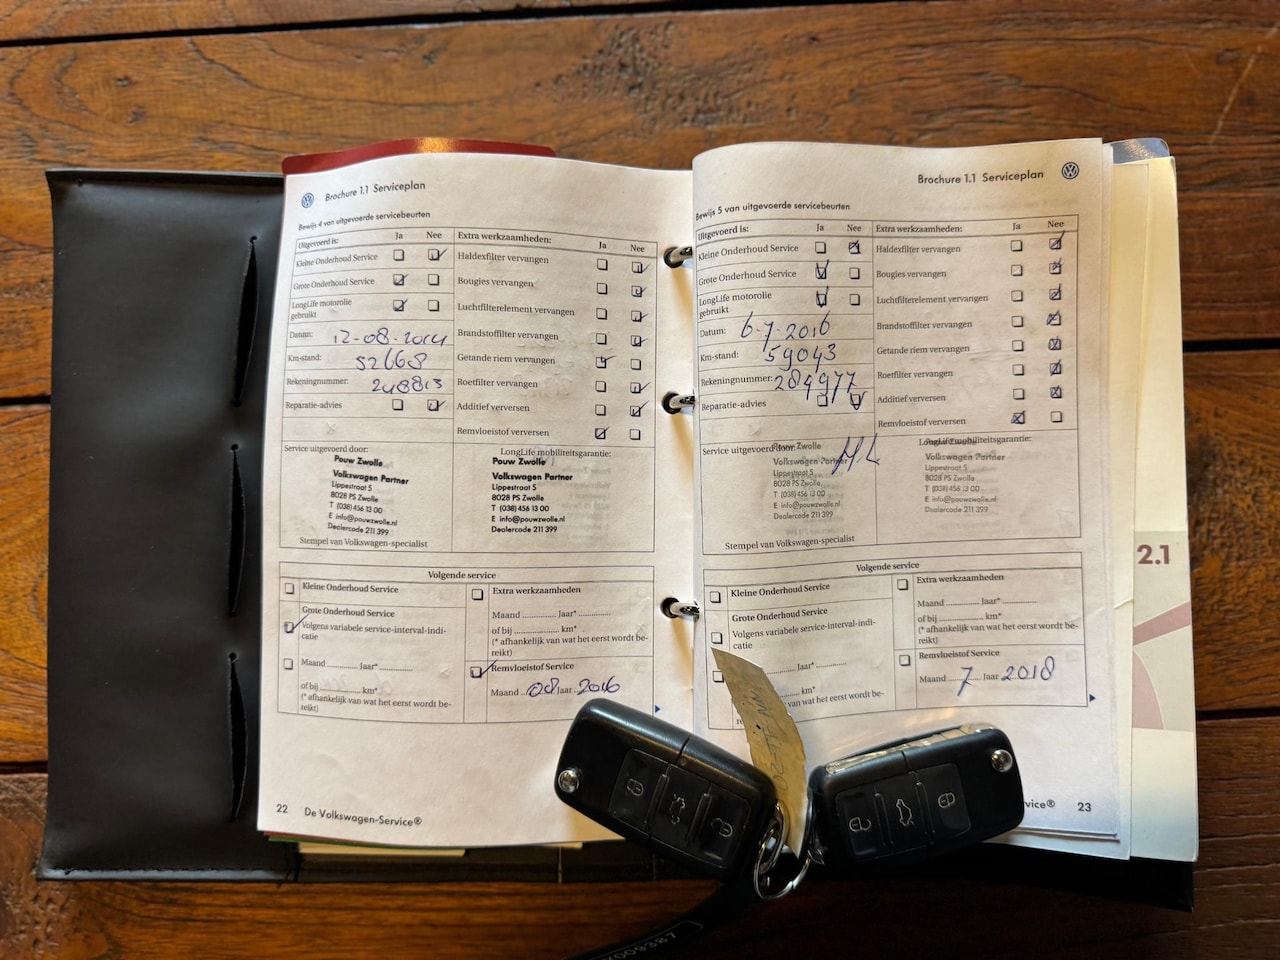 Brochure 1.1 Serviceplan
Bewijs 4 van uitgevoerde servicebeurten
Uitgevoerd is: Ja Nee
Kleine Onderhoud Service
Grote Onderhoud Service
LongLife motorolie
gebruikt
Datum: 12-08-2014
Km-stand: 52668
Rekeningnummer: 248813
Reparatie-advies
Extra werkzaamheden: Ja Nee
Haldexfilter vervangen
Bougies vervangen
Luchtfilterelement vervangen
Brandstoffilter vervangen
Getande riem vervangen
Roetfilter vervangen
Additief verversen
Remvloeistof verversen
Service uitgevoerd door:
Pouw Zwolle
Volkswagen Partner
Lippestraat 5
8028 PS Zwolle
T (038) 456 13 00
E info@pouwzwolle.nl
Dealercode 211 399
Stempel van Volkswagen-specialist
LongLife mobiliteitsgarantie:
Pouw Zwolle
Volkswagen Partner
Lippestraat 5
8028 PS Zwolle
T (038) 456 13 00
E info@pouwzwolle.nl
Dealercode 211 399
Volgende service
Kleine Onderhoud Service
Grote Onderhoud Service
Volgens variabele service-interval-indi-
catie
Maand ............ Jaar* ..............
of bij ................ km*
(* afhankelijk van wat het eerst wordt be-
reikt)
Extra werkzaamheden
Maand ............ Jaar* ..............
of bij ................ km*
(* afhankelijk van wat het eerst wordt be-
reikt)
Remvloeistof Service
Maand 08 Jaar 2016
22 De Volkswagen-Service®
Brochure 1.1 Serviceplan
Bewijs 5 van uitgevoerde servicebeurten
Uitgevoerd is: Ja Nee
Kleine Onderhoud Service
Grote Onderhoud Service
LongLife motorolie
gebruikt
Datum: 6-7-2016
Km-stand: 59043
Rekeningnummer: 284977
Reparatie-advies
Extra werkzaamheden: Ja Nee
Haldexfilter vervangen
Bougies vervangen
Luchtfilterelement vervangen
Brandstoffilter vervangen
Getande riem vervangen
Roetfilter vervangen
Additief verversen
Remvloeistof verversen
Service uitgevoerd door:
Pouw Zwolle
Volkswagen Partner
Lippestraat 5
8028 PS Zwolle
T (038) 456 13 00
E info@pouwzwolle.nl
Dealercode 211 399
Stempel van Volkswagen-specialist
LongLife mobiliteitsgarantie:
Volkswagen Partner
Lippestraat 5
8028 PS Zwolle
T (038) 456 13 00
E info@pouwzwolle.nl
Dealercode 211 399
Volgende service
Kleine Onderhoud Service
Grote Onderhoud Service
Volgens variabele service-interval-indi-
catie
Jaar* ..............
km*
(* afhankelijk van wat het eerst wordt be-
Extra werkzaamheden
Maand ............ Jaar* ..............
of bij ................ km*
(* afhankelijk van wat het eerst wordt be-
reikt)
Remvloeistof Service
Maand 7 Jaar 2018
23
2.1